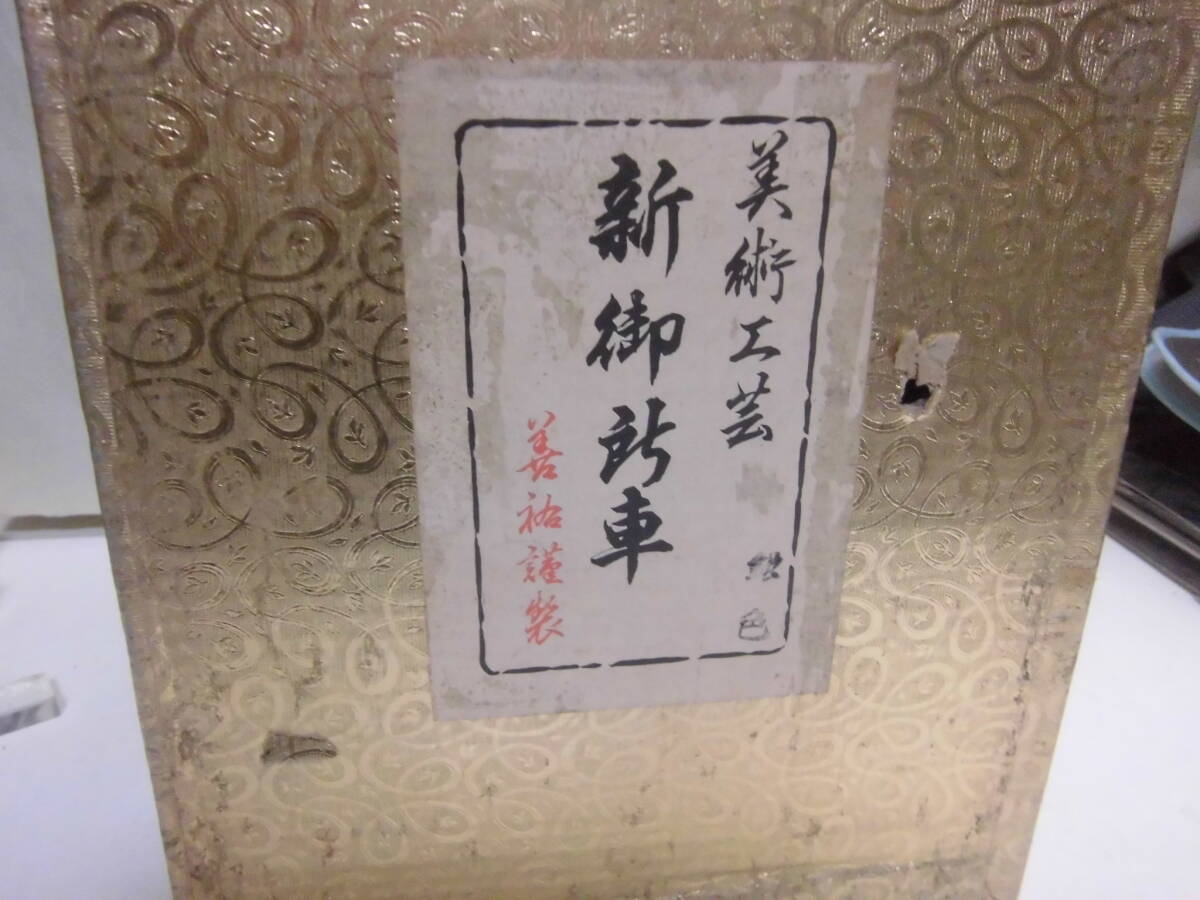 美術工芸
色
新御所車
善祐謹製